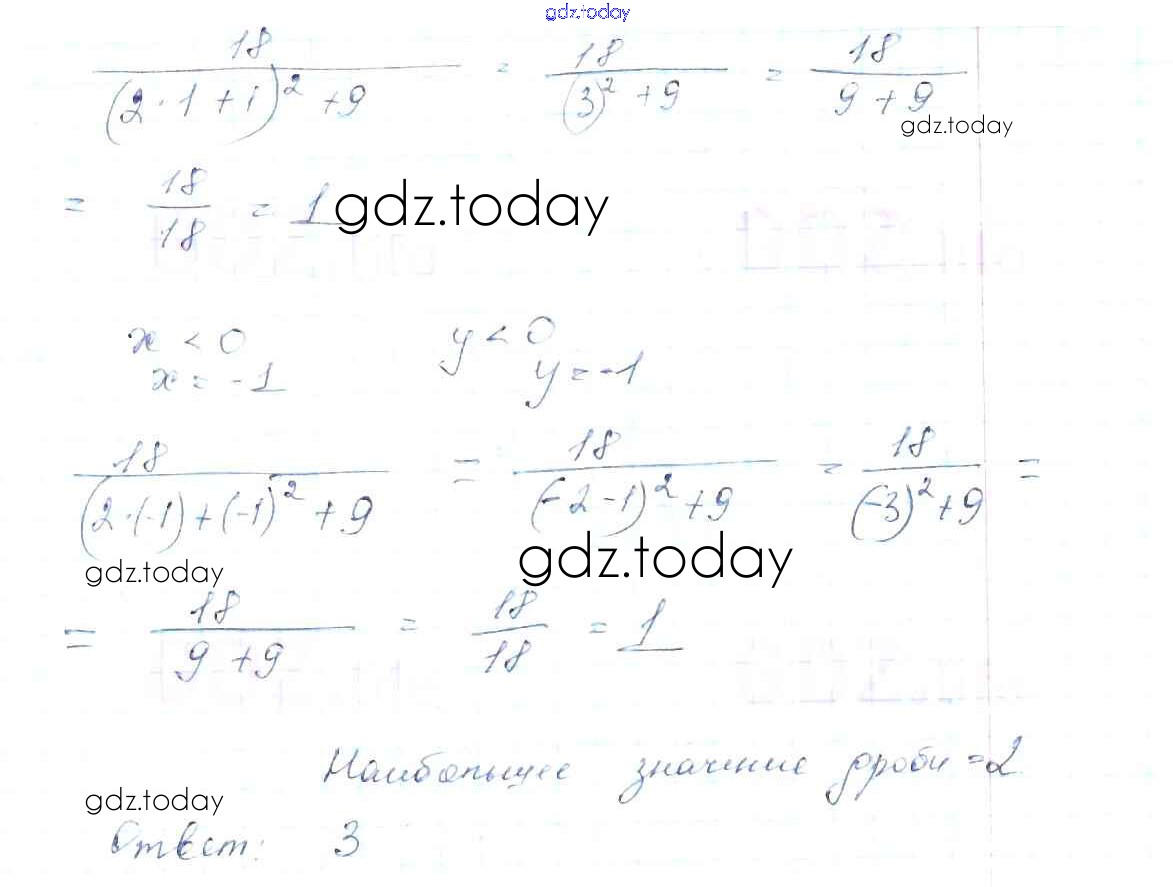 gdz.today
18/((2·1+1)²+9) = 18/((3)²+9) = 18/(9+9)
gdz.today
= 18/18 = 1
gdz.today
x < 0 y < 0
x = -1 y = -1
18/((2·(-1)+(-1))²+9) = 18/((-2-1)²+9) = 18/((-3)²+9) =
gdz.today
gdz.today
= 18/(9+9) = 18/18 = 1
Наибольшее значение дроби = 2
gdz.today
Ответ: 3